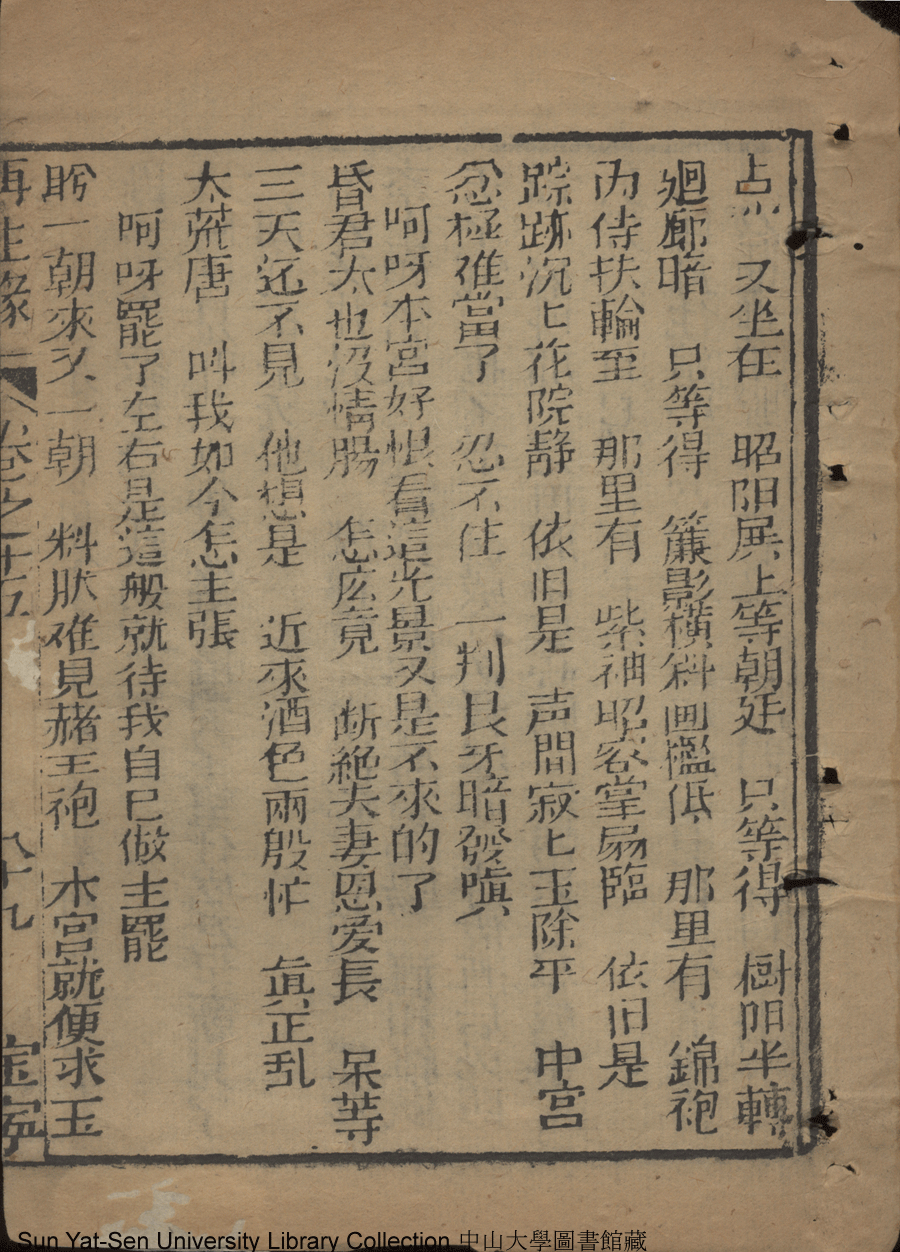 点〻 又坐在 昭阳殿上等朝廷 只等得 樹阳半轉
廻廊暗 只等得 簾影横斜画檻低 那里有 錦袍
内侍扶輪至 那里有 紫袖昭容掌扇臨 依旧是
踪跡沉〻花院静 依旧是 声間寂〻玉除平 中宫
忿極难當了 忍不住 一判艮牙暗發嗔
呵呀本宮好恨看這光景又是不來的了
昏君太也没情腸 怎広竟 断絶夫妻恩爱長 呆等
三天还不見 他想是 近來酒色兩般忙 真正乱
太荒唐 叫我如今怎主張
呵呀罷了左右是這般就待我自己做主罷
盻一朝來又一朝 料肰难見赭王袍 本宫就便求玉
再生緣 卷之十五 八十九 宝寧
Sun Yat-Sen University Library Collection 中山大學圖書館藏